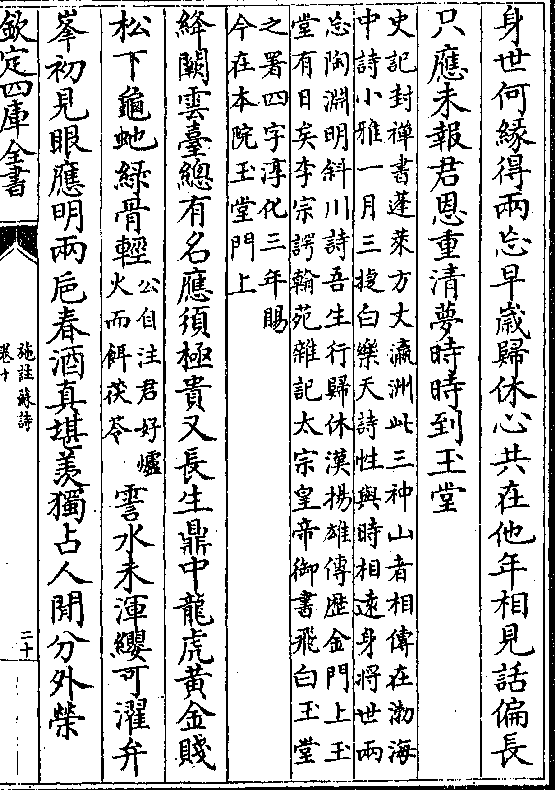 身世何緣得兩忘早歲歸休心共在他年相見話偏長
只應未報君恩重清夢時時到玉堂
史記封禪書蓬萊方丈瀛洲此三神山者相傳在渤海
中詩小雅一月三捷白樂天詩性與時相遠身將世兩
忘陶淵明斜川詩吾生行歸休漢揚雄傳歴金門上玉
堂有日矣李宗諤翰苑雜記太宗皇帝御書飛白玉堂
之署四字淳化三年賜
今在本院玉堂門上
絳闕雲臺總有名應須極貴又長生鼎中龍虎黃金賤
松下龜虵綠骨輕公自注君好爐火而餌茯苓霅水未渾纓可濯弁
峯初見眼應明兩巵春酒真堪羡獨占人間分外榮
欽定四庫全書
施註蘇詩
卷十
二十